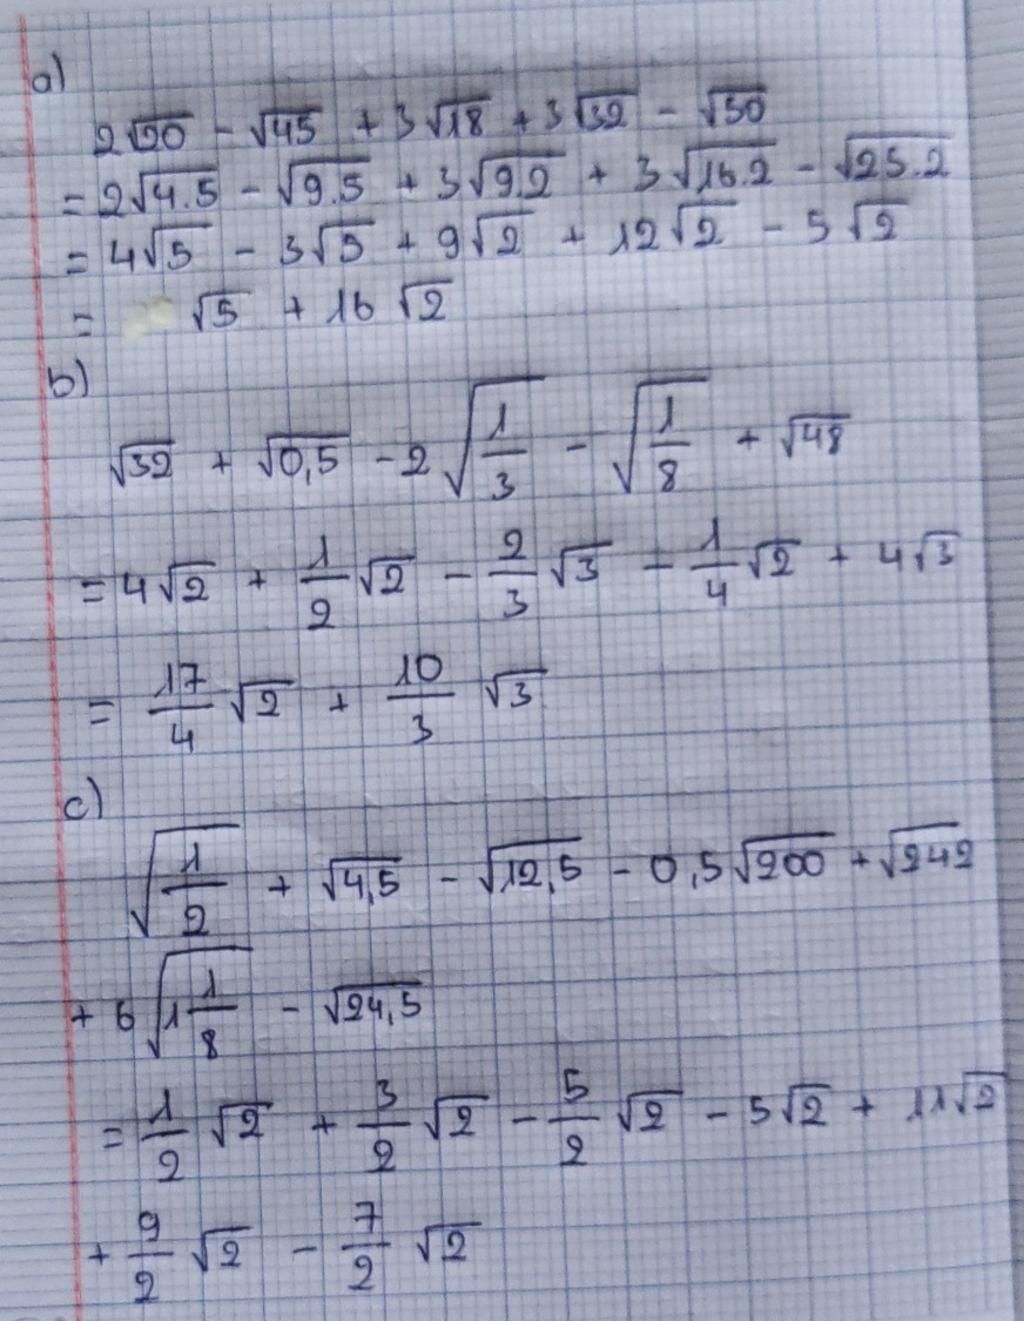 a)
2√20 - √45 + 3√18 + 3√32 - √50
= 2√4.5 - √9.5 + 3√9.2 + 3√16.2 - √25.2
= 4√5 - 3√5 + 9√2 + 12√2 - 5√2
= √5 + 16√2
b)
√32 + √0,5 - 2√1/3 - √1/8 + √48
= 4√2 + 1/2 √2 - 2/3 √3 - 1/4 √2 + 4√3
= 17/4 √2 + 10/3 √3
c)
√1/2 + √4,5 - √12,5 - 0,5√200 + √242
+ 6√1 1/8 - √24,5
= 1/2 √2 + 3/2 √2 - 5/2 √2 - 5√2 + 11√2
+ 9/2 √2 - 7/2 √2